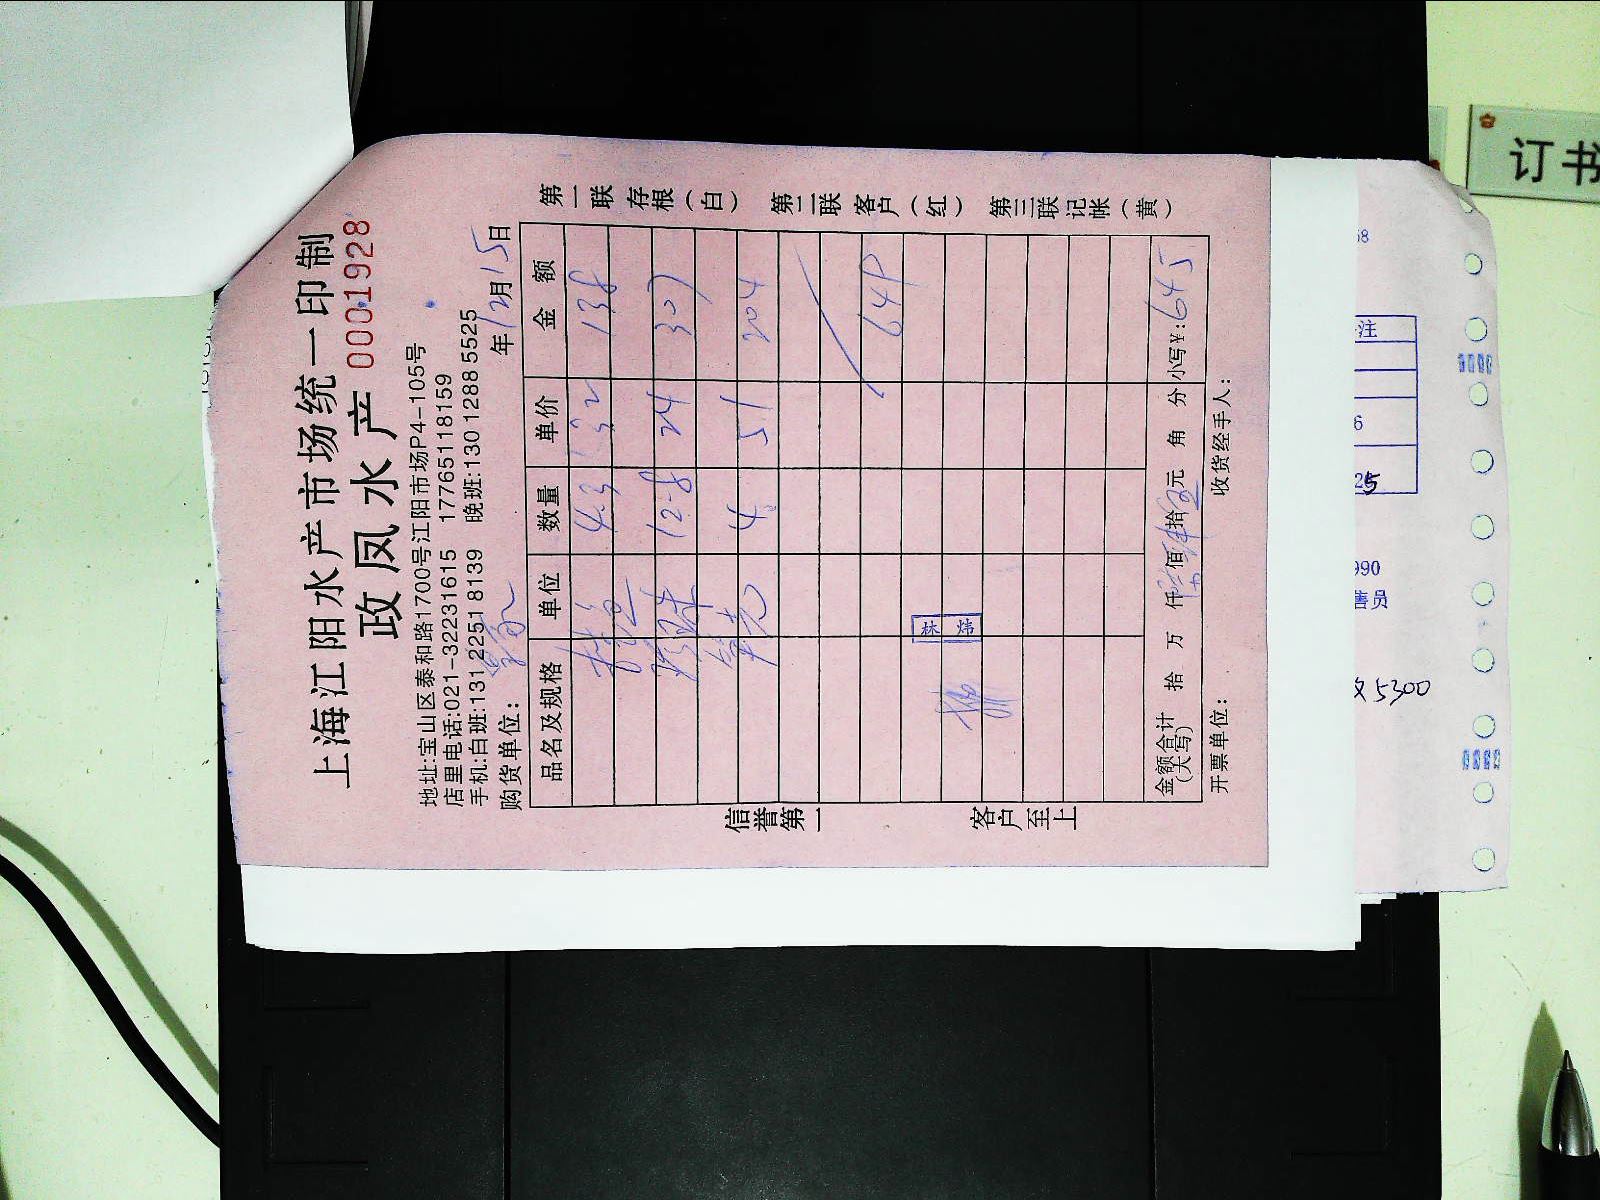 上海江阳水产市场统一印制
政凤水产 0001928
地址:宝山区泰和路1700号江阳市场P4-105号
店里电话:021-32231615 17765118159
手机:白班:131 2251 8139 晚班:130 1288 5525
购货单位: 年12月15日
品名及规格 单位 数量 单价 金额
4.3 32 138
12.8 24 307
4 51 204
649
林 炜
金额合计(大写) 拾 万 仟 佰 拾 元 角 分 小写¥:645
开票单位: 收货经手人:
第一联 存根(白) 第二联 客户(红) 第三联 记帐(黄)
信誉第一 客户至上
订书
注
6
990
售员
5300